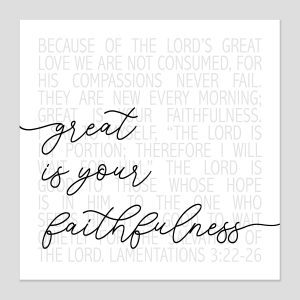 BECAUSE OF THE LORD'S GREAT
LOVE WE ARE NOT CONSUMED, FOR
HIS COMPASSIONS NEVER FAIL.
THEY ARE NEW EVERY MORNING;
GREAT UR FAITHFULNESS.
ELF, "THE LORD IS
PORTION; THEREFORE I WILL
THE LORD IS
THOSE WHOSE HOPE
IS IN HIM TO THE ONE
THE LORD. LAMENTATIONS 3:22-26
great
is your
faithfulness